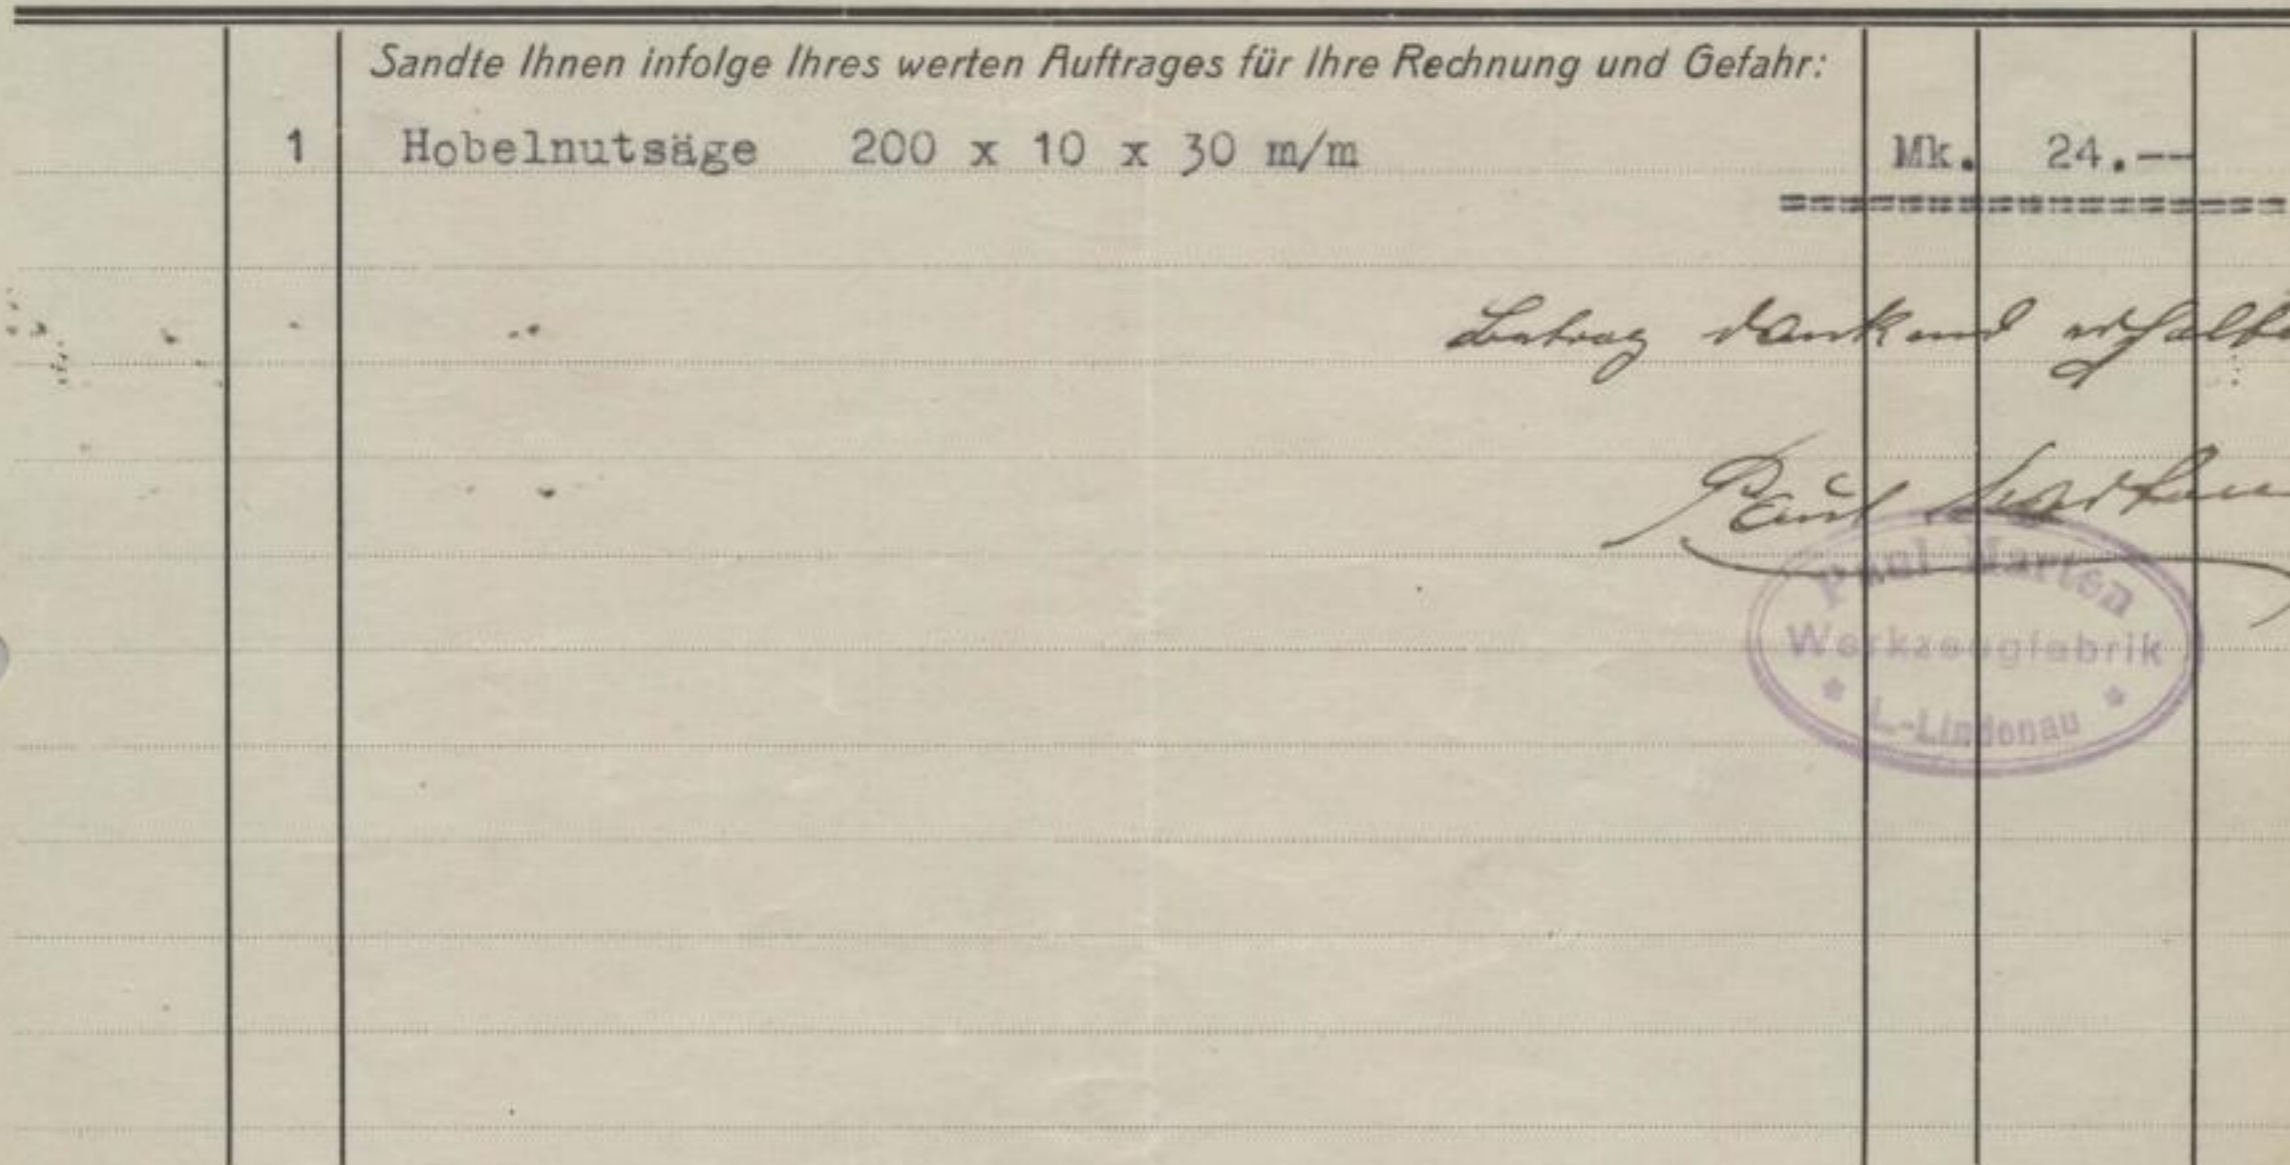 Sandte Ihnen infolge Ihres werten Auftrages für Ihre Rechnung und Gefahr:
1 Hobelnutsäge 200 x 10 x 30 m/m Mk. 24.--
Betrag dankend erhalte
Paul Marten
Paul Marten
Werkzeugfabrik
L.-Lindenau